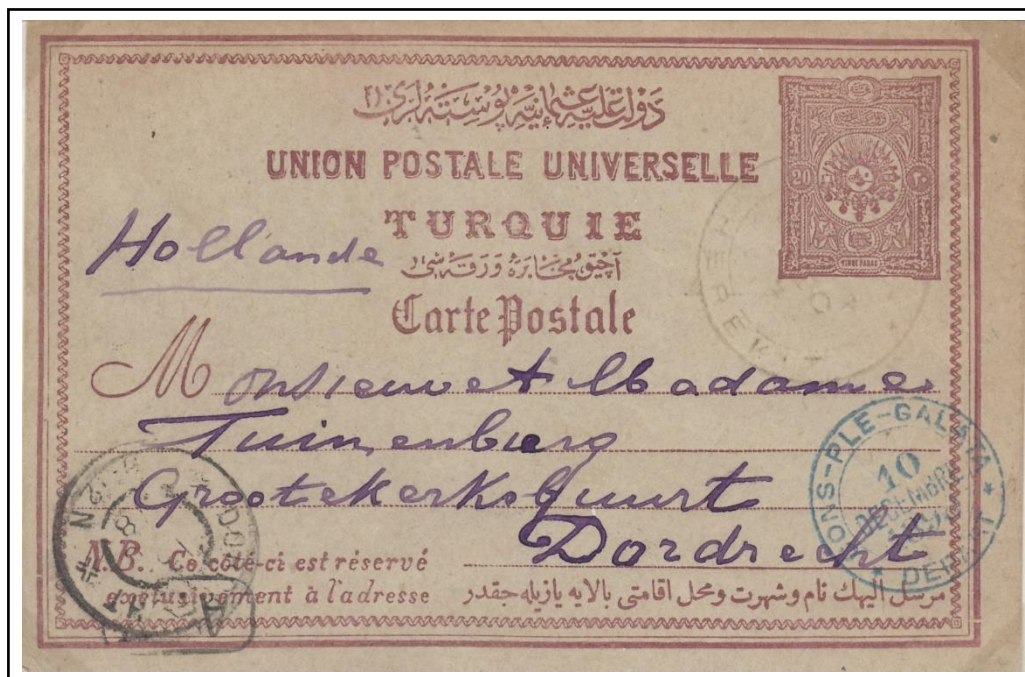 دولت علیه عثمانیه پوسته لری
UNION POSTALE UNIVERSELLE
TURQUIE
Hollande
آچیق مخابره ورقه سی
Carte Postale
20
٢٠
VINGT PARAS
Monsieur et Madame
Tuinenburg
Grootekerksbuurt
Dordrecht
N.B. Ce côté-ci est réservé
exclusivement à l'adresse
مرسل الیهك نام و شهرت و محل اقامتی بالایه یازیله جقدر
CONS-PLE-GALATA
10
DECEMBRE
DEPART
DOR